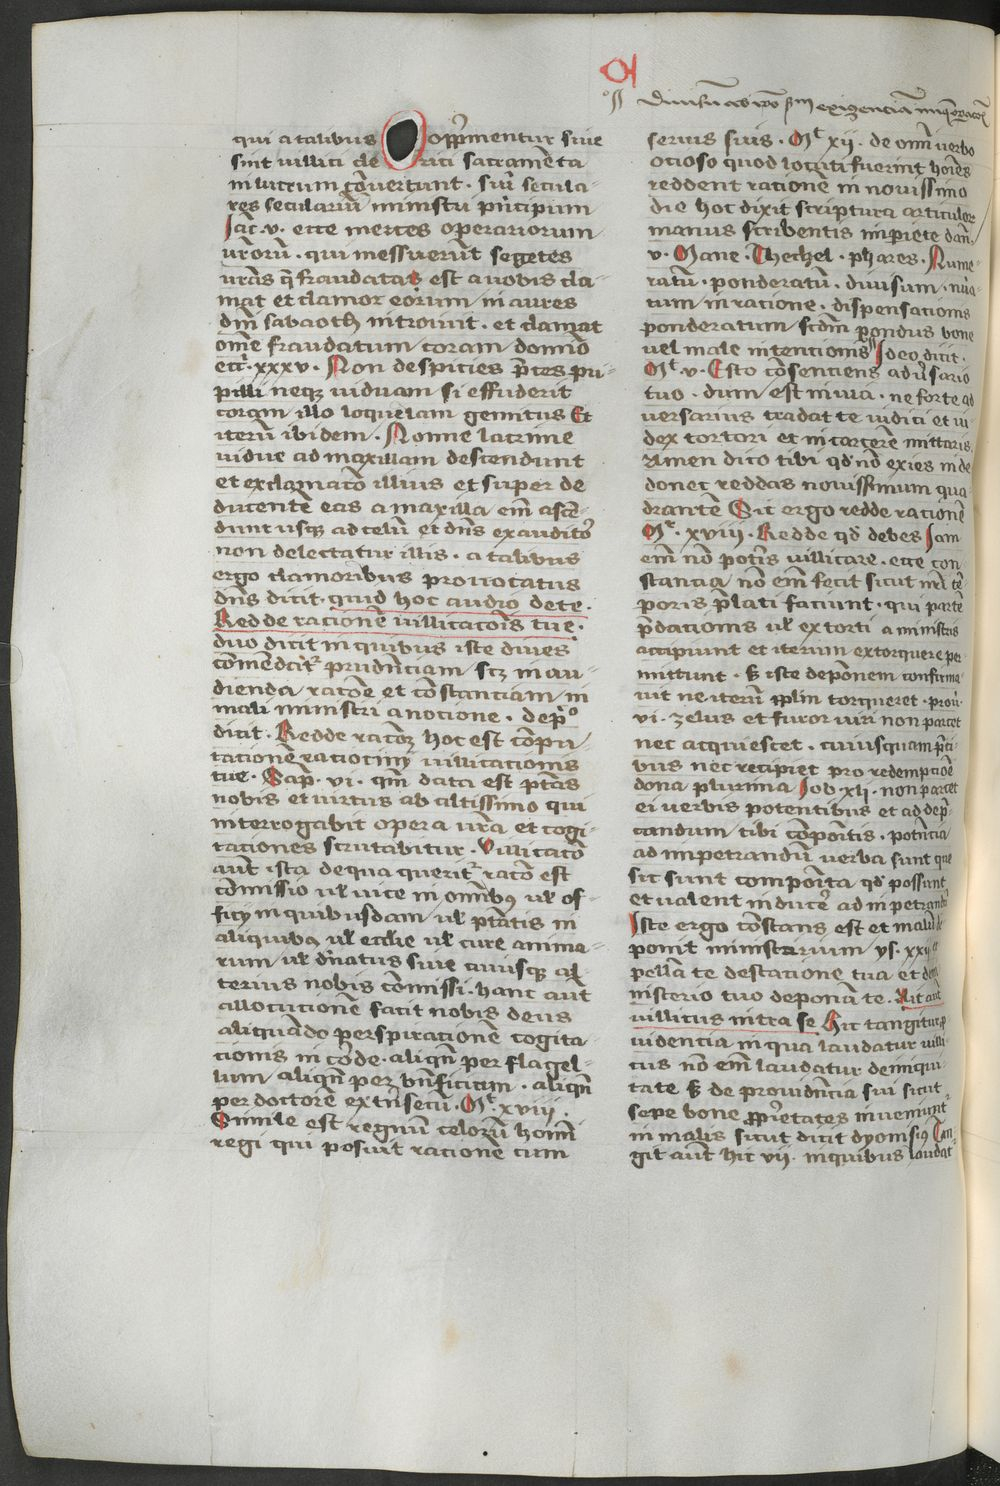 qui a talibus opp͛mentur siue
sint uillici cle rici sacramēta
in lucrum ꝯuertunt · siu͛ secula-
res seculariū ministri p͛ncipum
Jac̄ · v · ecce merces operariorum
ur̄orū · qui messuerūt segetes
ur̄as q̄ fraudatas est a uobis cla
mat et clamor eorum in aures
dn̄i sabaoth introiuit · et clamat
om̄e fraudatum coram domino
ecc͛ · xxxv · Non despicies p͛ces pu-
pilli neqꝫ uiduam si effuderit
coram illo loquelam gemitus Et
iterū ibidem · Nonne lacrime
uidue ad maxillam descendunt
et exclamatō illius et super de
ducentē eas a maxilla em̄ ascē-
dunt usqꝫ ad celū et dn̄s exauditor͛
non delectatur illis · a talibus
ergo clamoribus prouocatus
dn̄s dicit · quid hoc audio de te ·
Redde racionē uillicatōis tue ·
duo dicit in quibus iste diues
cōmēdat͛ prudn̄ciam scꝫ in au-
dienda racōe et cōstanciam in
mali ministri amocione · de p͛o
dicit · Redde racōꝫ hoc est cōpu-
tacionē raciocinij uillicacionis
tue · Sap̄ · vi · qm̄ data est ptās
nobis et uirtus ab altissimo qui
interrogabit opera ur̄a et cogi-
taciones scrutabitur · Villicacō
aut̄ ista de qua querit͛ racō est
cōmissio uł uice in om̄ibꝰ uł of-
ficij in quibusdam uł ptātis in
aliquibꝰ uł ecclie uł cure anima-
rum uł dn̄atus siue cuiusqꝫ al-
terius nobis cōmissi · hanc aut̄
allocucionē facit nobis deus
aliquādo per spiracionē cogita-
cionis in corde · aliqn̄ per flagel-
lum aliqn̄ per bn̄ficium · aliqn̄
per doctorē extrīsecū · Mͭ · xviii ·
Simile est regnū celorū homī
regi qui posuit racionē cum
diuisū
exigenciā
seruis suis · Mͭ xii · de om̄i uerbo
ocioso quod locuti fuerint hoīes
reddent racionē in nouissimo
die hoc dixit scriptura articulor͛
manus scribentis in pariete dan̄
v · Mane · Thechel · phares · Nume-
ratū · ponderatū · diuisum · nūa-
tum in racione · dispensacionis
ponderatum scdm̄ pondus bone
uel male intencionis Ideo dicit ·
Mͭ · v · Esto cōsenciens adu͛sario
tuo · dum est in uia · ne forte ad
uersarius tradat te iudici et iu
dex tortori et in carcerē mittaris
Amen dico tibi qd̄ nō exies inde
donec reddas nouissimum qua-
drantē Sic ergo redde racionē
Mͭ · xviii · Redde qd̄ debes Jam
em̄ nō pot͛is uillicare · ecce con-
stancia nō em̄ fecit sicut nr̄i tē-
poris p͛lati faciunt · qui partē
p͛dacionis uł extorti a ministris
accipiunt et iterum extorquere per
mittunt · Sꝫ iste deponem confirma
uit ne iterū ppłm torqueret · prou͛
vi · zelus et furor uiri non parcet
nec acquiescet · cuiusquam p͛ci-
bus nec recipiet pro redempcōe
dona plurima Job · xli · non parcet
ei uerbis potentibus et ad dep͛-
candum tibi cōpositis · potn̄cia
ad impetrandū uerba sunt que
sic sunt composita qd̄ possunt
et ualent inducē ad impetrandū
Iste ergo cōstans est et malū de
ponit ministerium ys · xxij
pellā te de stacione tua et de mi
nisterio tuo deponā te · Ait aut̄
uillicus intra se Hic tangitur p
uidencia in qua laudatur uilli
cus nō em̄ laudatur de iniqui-
tate Sꝫ de prouidn̄cia sui sicut
sepe bone pprietates inueniunt͛
in malis sicut dicit dyonisiꝰ Tan-
git aut̄ hic vij · in quibus laudat